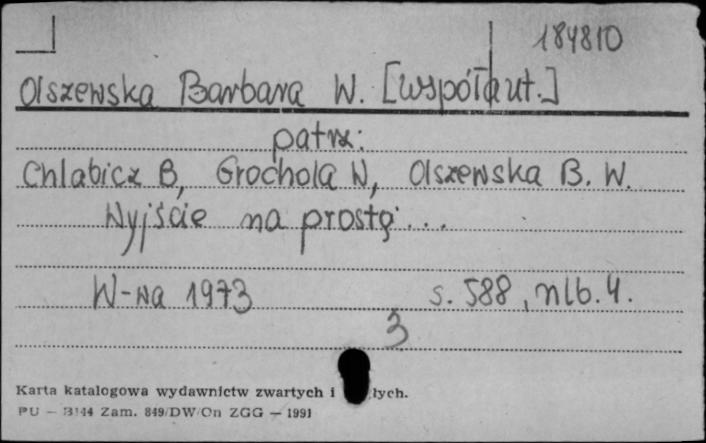 184810
Olszewska Barbara W. [współaut.]
patrz:
Chlabicz B, Grochola W, Olszewska B. W.
Wyjście na prostą ...
W-wa 1973 s. 588, nlb. 4.
3
Karta katalogowa wydawnictw zwartych i łych.
PU — B144 Zam. 849/DW/On ZGG — 1991